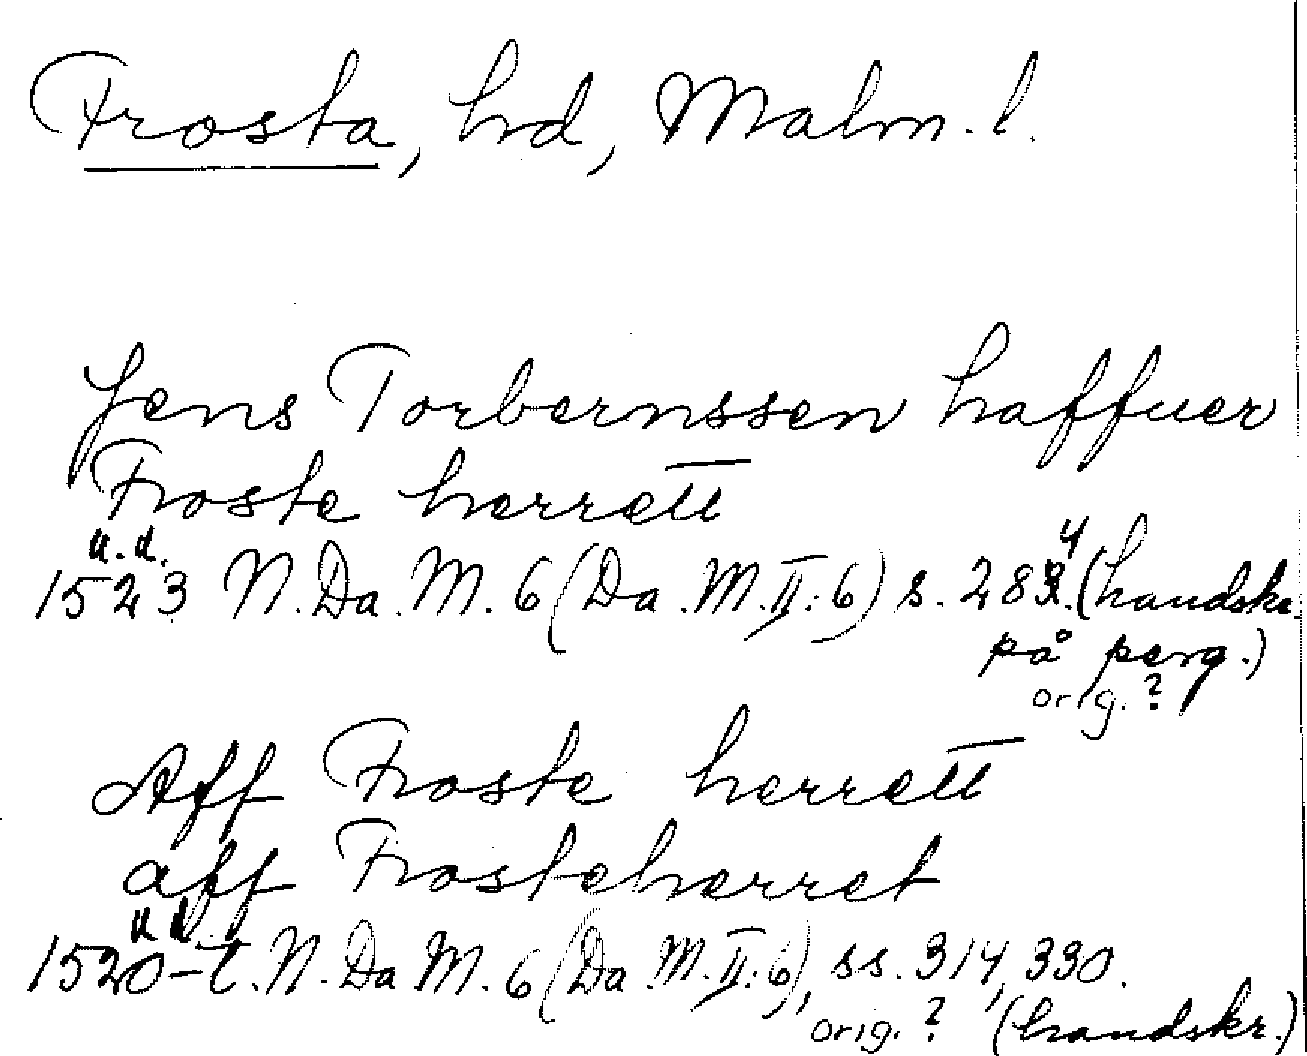 Frosta, hd, Malm. l.
Jens Torbernssen haffuer
Froste herrett
u. d.
1523 N. Da. M. 6 (Da. M. II: 6) s. 284. (handskr.
på perg.)
orig. ?
Aff Froste herrett
aff Frosteherret
u. d.
1520-t. N. Da M. 6 (Da. M. II: 6), ss. 314, 330.
orig. ? (handskr.)